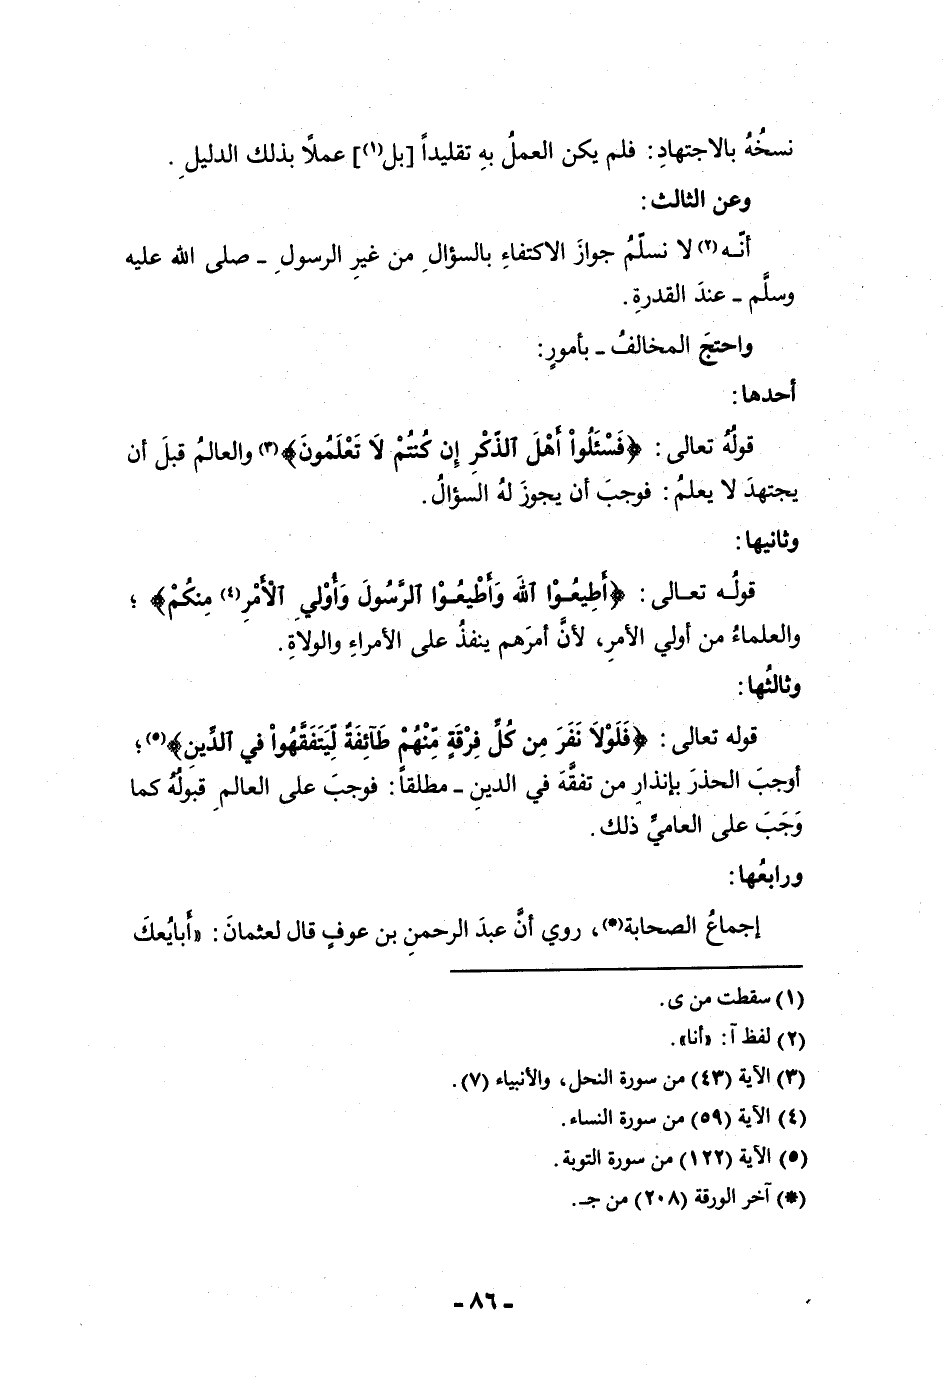 نسخُهُ بالاجتهادِ: فلم يكن العملُ بهِ تقليداً [بل(١)] عملاً بذلك الدليلِ .
وعن الثالث:
أنّـه(٢) لا نسلّمُ جوازَ الاكتفاءِ بالسؤالِ من غيرِ الرسولِ ـ صلى الله عليه
وسلَّم ـ عندَ القدرةِ.
واحتجَ المخالفُ ـ بأمورٍ:
أحدها:
قولُهُ تعالى: ﴿فَسْئَلُواْ أَهْلَ ٱلذّكْرِ إِن كُنتُمْ لَا تَعْلَمُونَ﴾(٣) والعالمُ قبلَ أن
يجتهدَ لا يعلمُ: فوجبَ أن يجوزَ لهُ السؤالُ.
وثانيها:
قولُـه تعـالى: ﴿أَطِيعُـوْا ٱللهَ وَأَطْيعُـوْا ٱلرَّسُولَ وَأُوْلِي ٱلْأَمْرِ(٤) مِنكُمْ﴾ ؛
والعلماءُ من أولي الأمرِ، لأنَّ أمرَهم ينفذُ على الأمراءِ والولاةِ.
وثالثُها:
قوله تعالى: ﴿فَلَوْلَا نَفَرَ مِن كُلِّ فِرْقَةٍ مِّنْهُمْ طَآئِفَةٌ لِّيَتَفَقَّهُواْ في ٱلدِّينِ﴾(٥)؛
أوجبَ الحذرَ بإنذارِ من تفقَّهَ في الدينِ ـ مطلقاً: فوجبَ على العالمِ قبولُهُ كما
وَجَبَ على العاميِّ ذلك.
ورابعُها:
إجماعُ الصحابة(*)، روي أنَّ عبدَ الرحمنِ بن عوفٍ قال لعثمانَ: «أُبايُعكَ
(١) سقطت من ى.
(٢) لفظ آ: «أنا».
(٣) الآية (٤٣) من سورة النحل، والأنبياء (٧).
(٤) الآية (٥٩) من سورة النساء.
(٥) الآية (١٢٢) من سورة التوبة.
(*) آخر الورقة (٢٠٨) من جـ.
- ٨٦ -